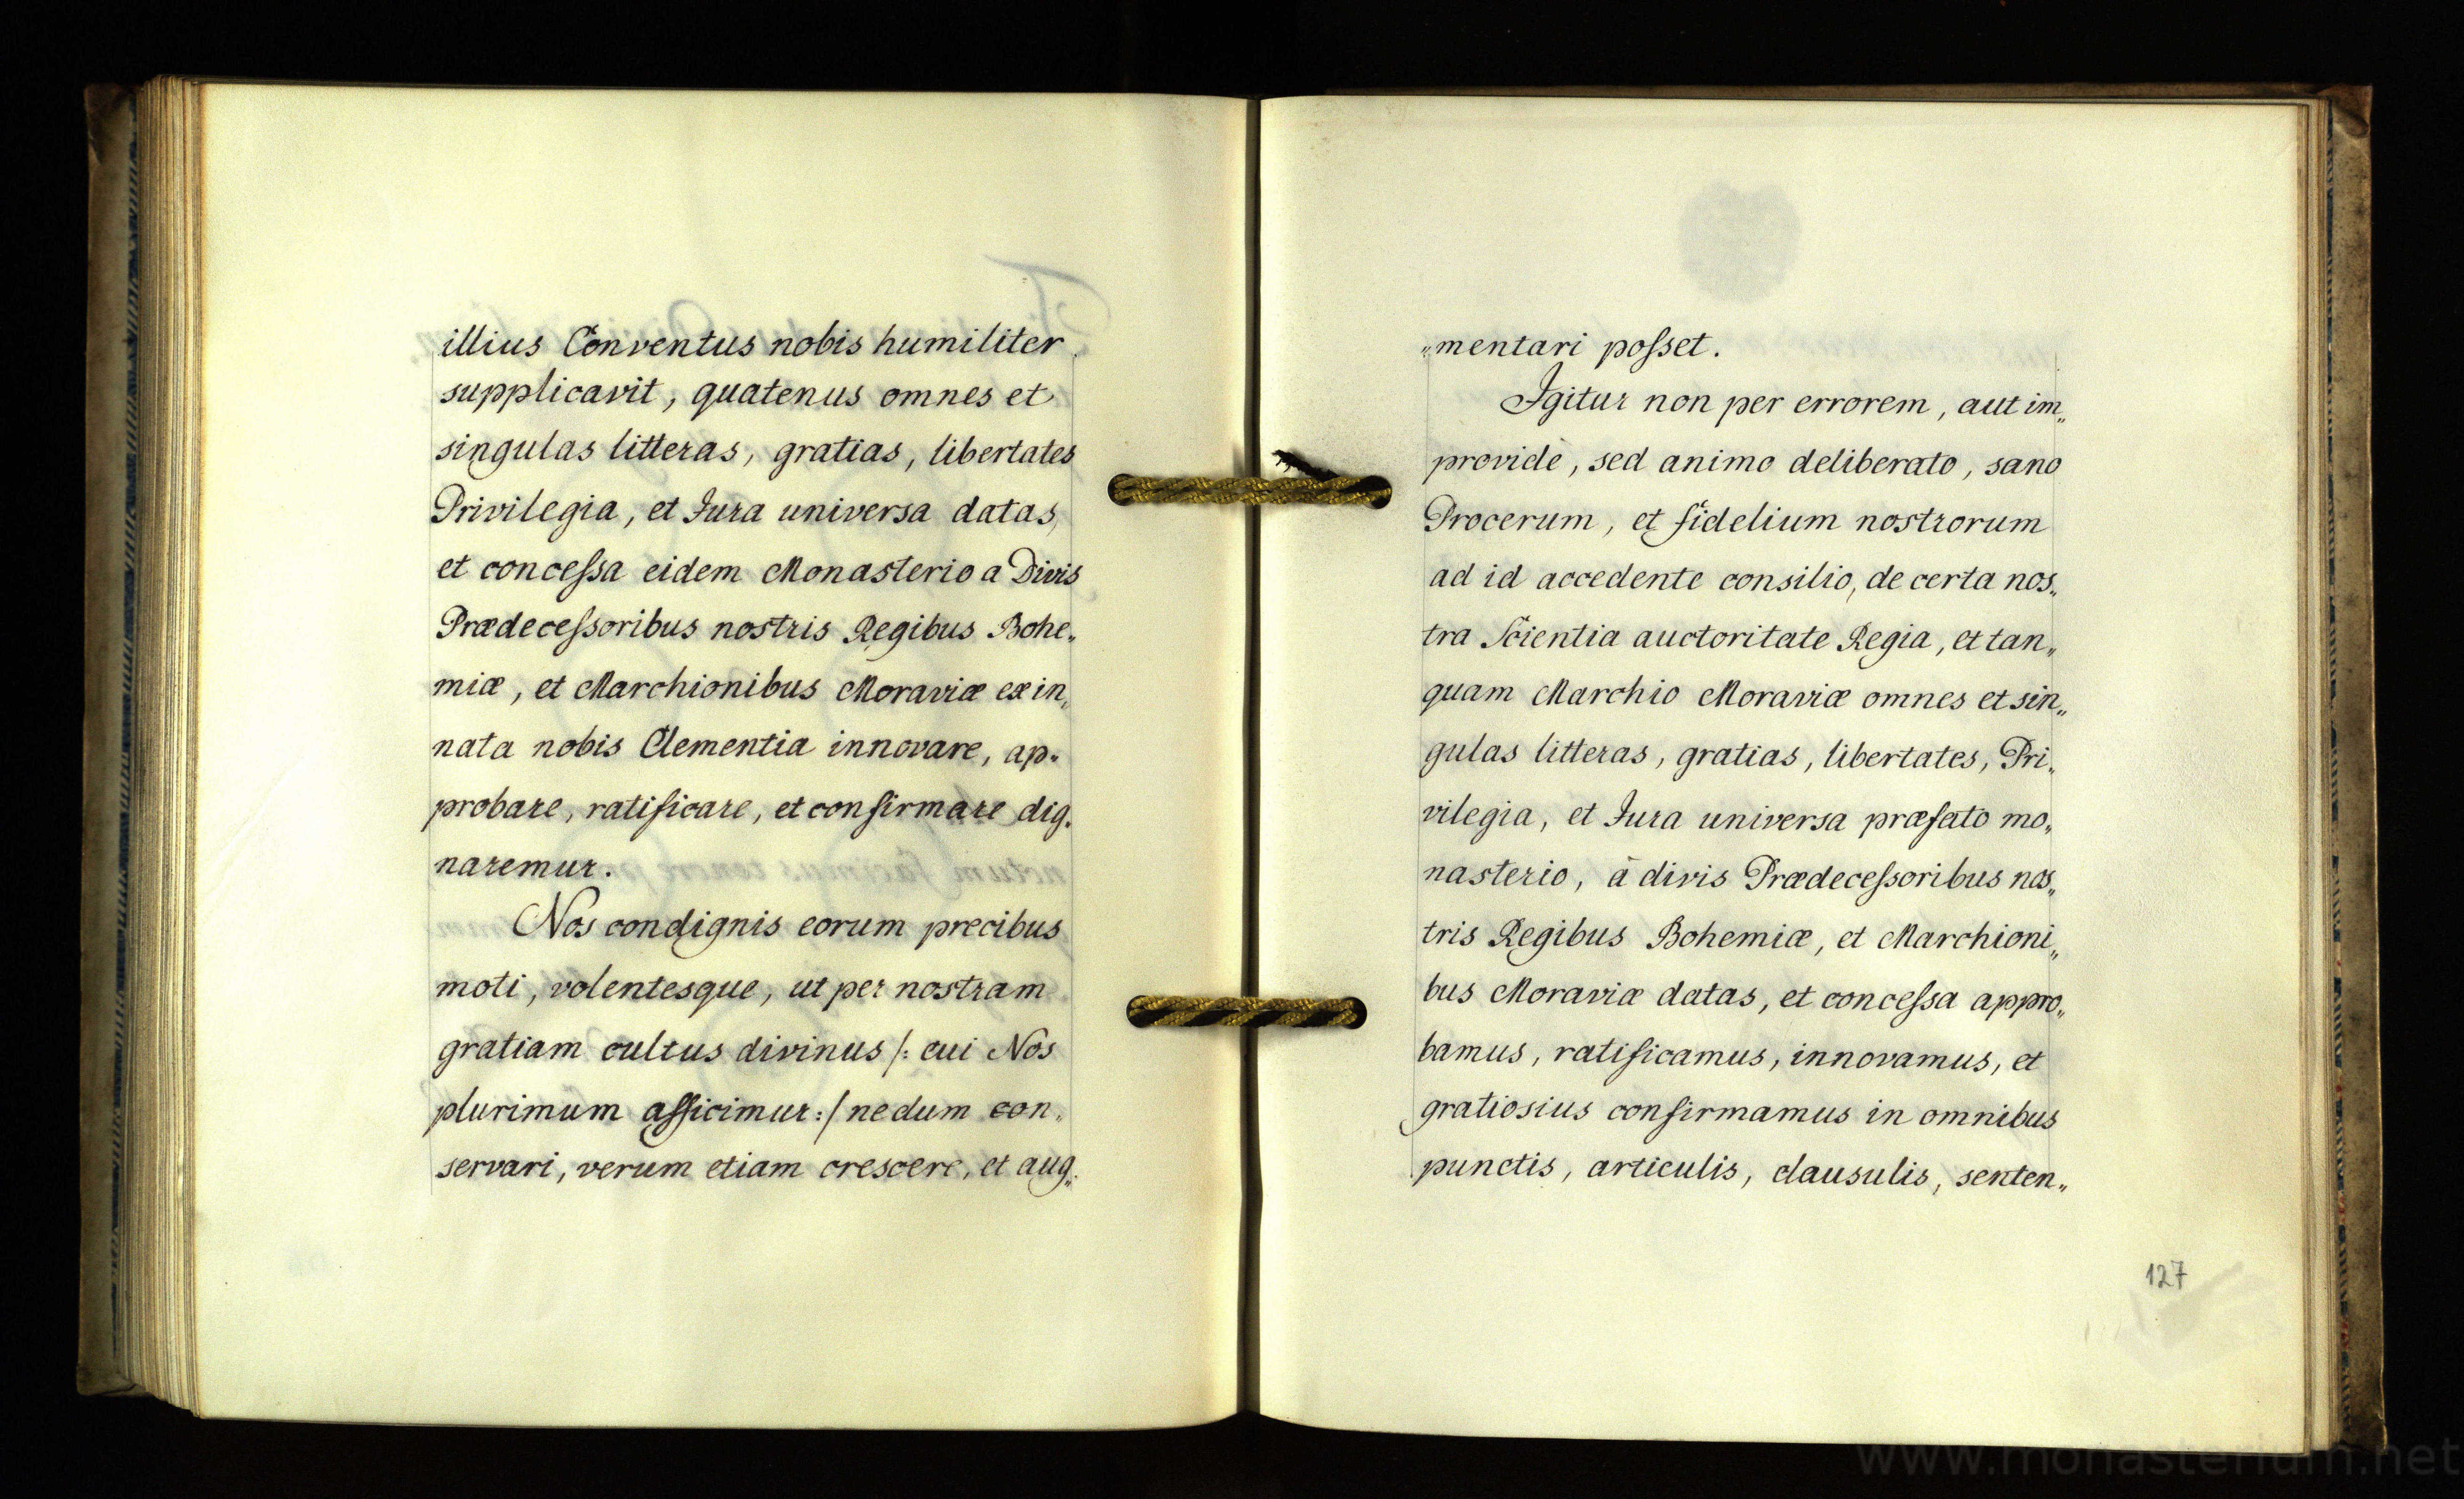 illius Conventus nobis humiliter
supplicavit, quatenus omnes et
singulas litteras, gratias, libertates
Privilegia, et Jura universa datas,
et conceſsa eidem Monasterio a Divis
Prædeceſsoribus nostris Regibus Bohe„
miæ, et Marchionibus Moraviæ ex in„
nata nobis Clementia innovare, ap„
probare, ratificare, et confirmare dig„
naremur.
Nos condignis eorum precibus
moti, volentesque, ut per nostram
gratiam cultus divinus /: cui Nos
plurimum afficimur :/ nedum con„
servari, verum etiam crescere, et aug„
„mentari poſset.
Igitur non per errorem, aut im„
providè, sed animo deliberato, sano
Procerum, et fidelium nostrorum
ad id accedente consilio, de certa nos„
tra Scientia auctoritate Regia, et tan„
quam Marchio Moraviæ omnes et sin„
gulas litteras, gratias, libertates, Pri„
vilegia, et Jura universa præfato mo„
nasterio, à divis Prædeceſsoribus nos„
tris Regibus Bohemiæ, et Marchioni„
bus Moraviæ datas, et conceſsa appro„
bamus, ratificamus, innovamus, et
gratiosius confirmamus in omnibus
punctis, articulis, clausulis, senten„
127
www.monasterium.net